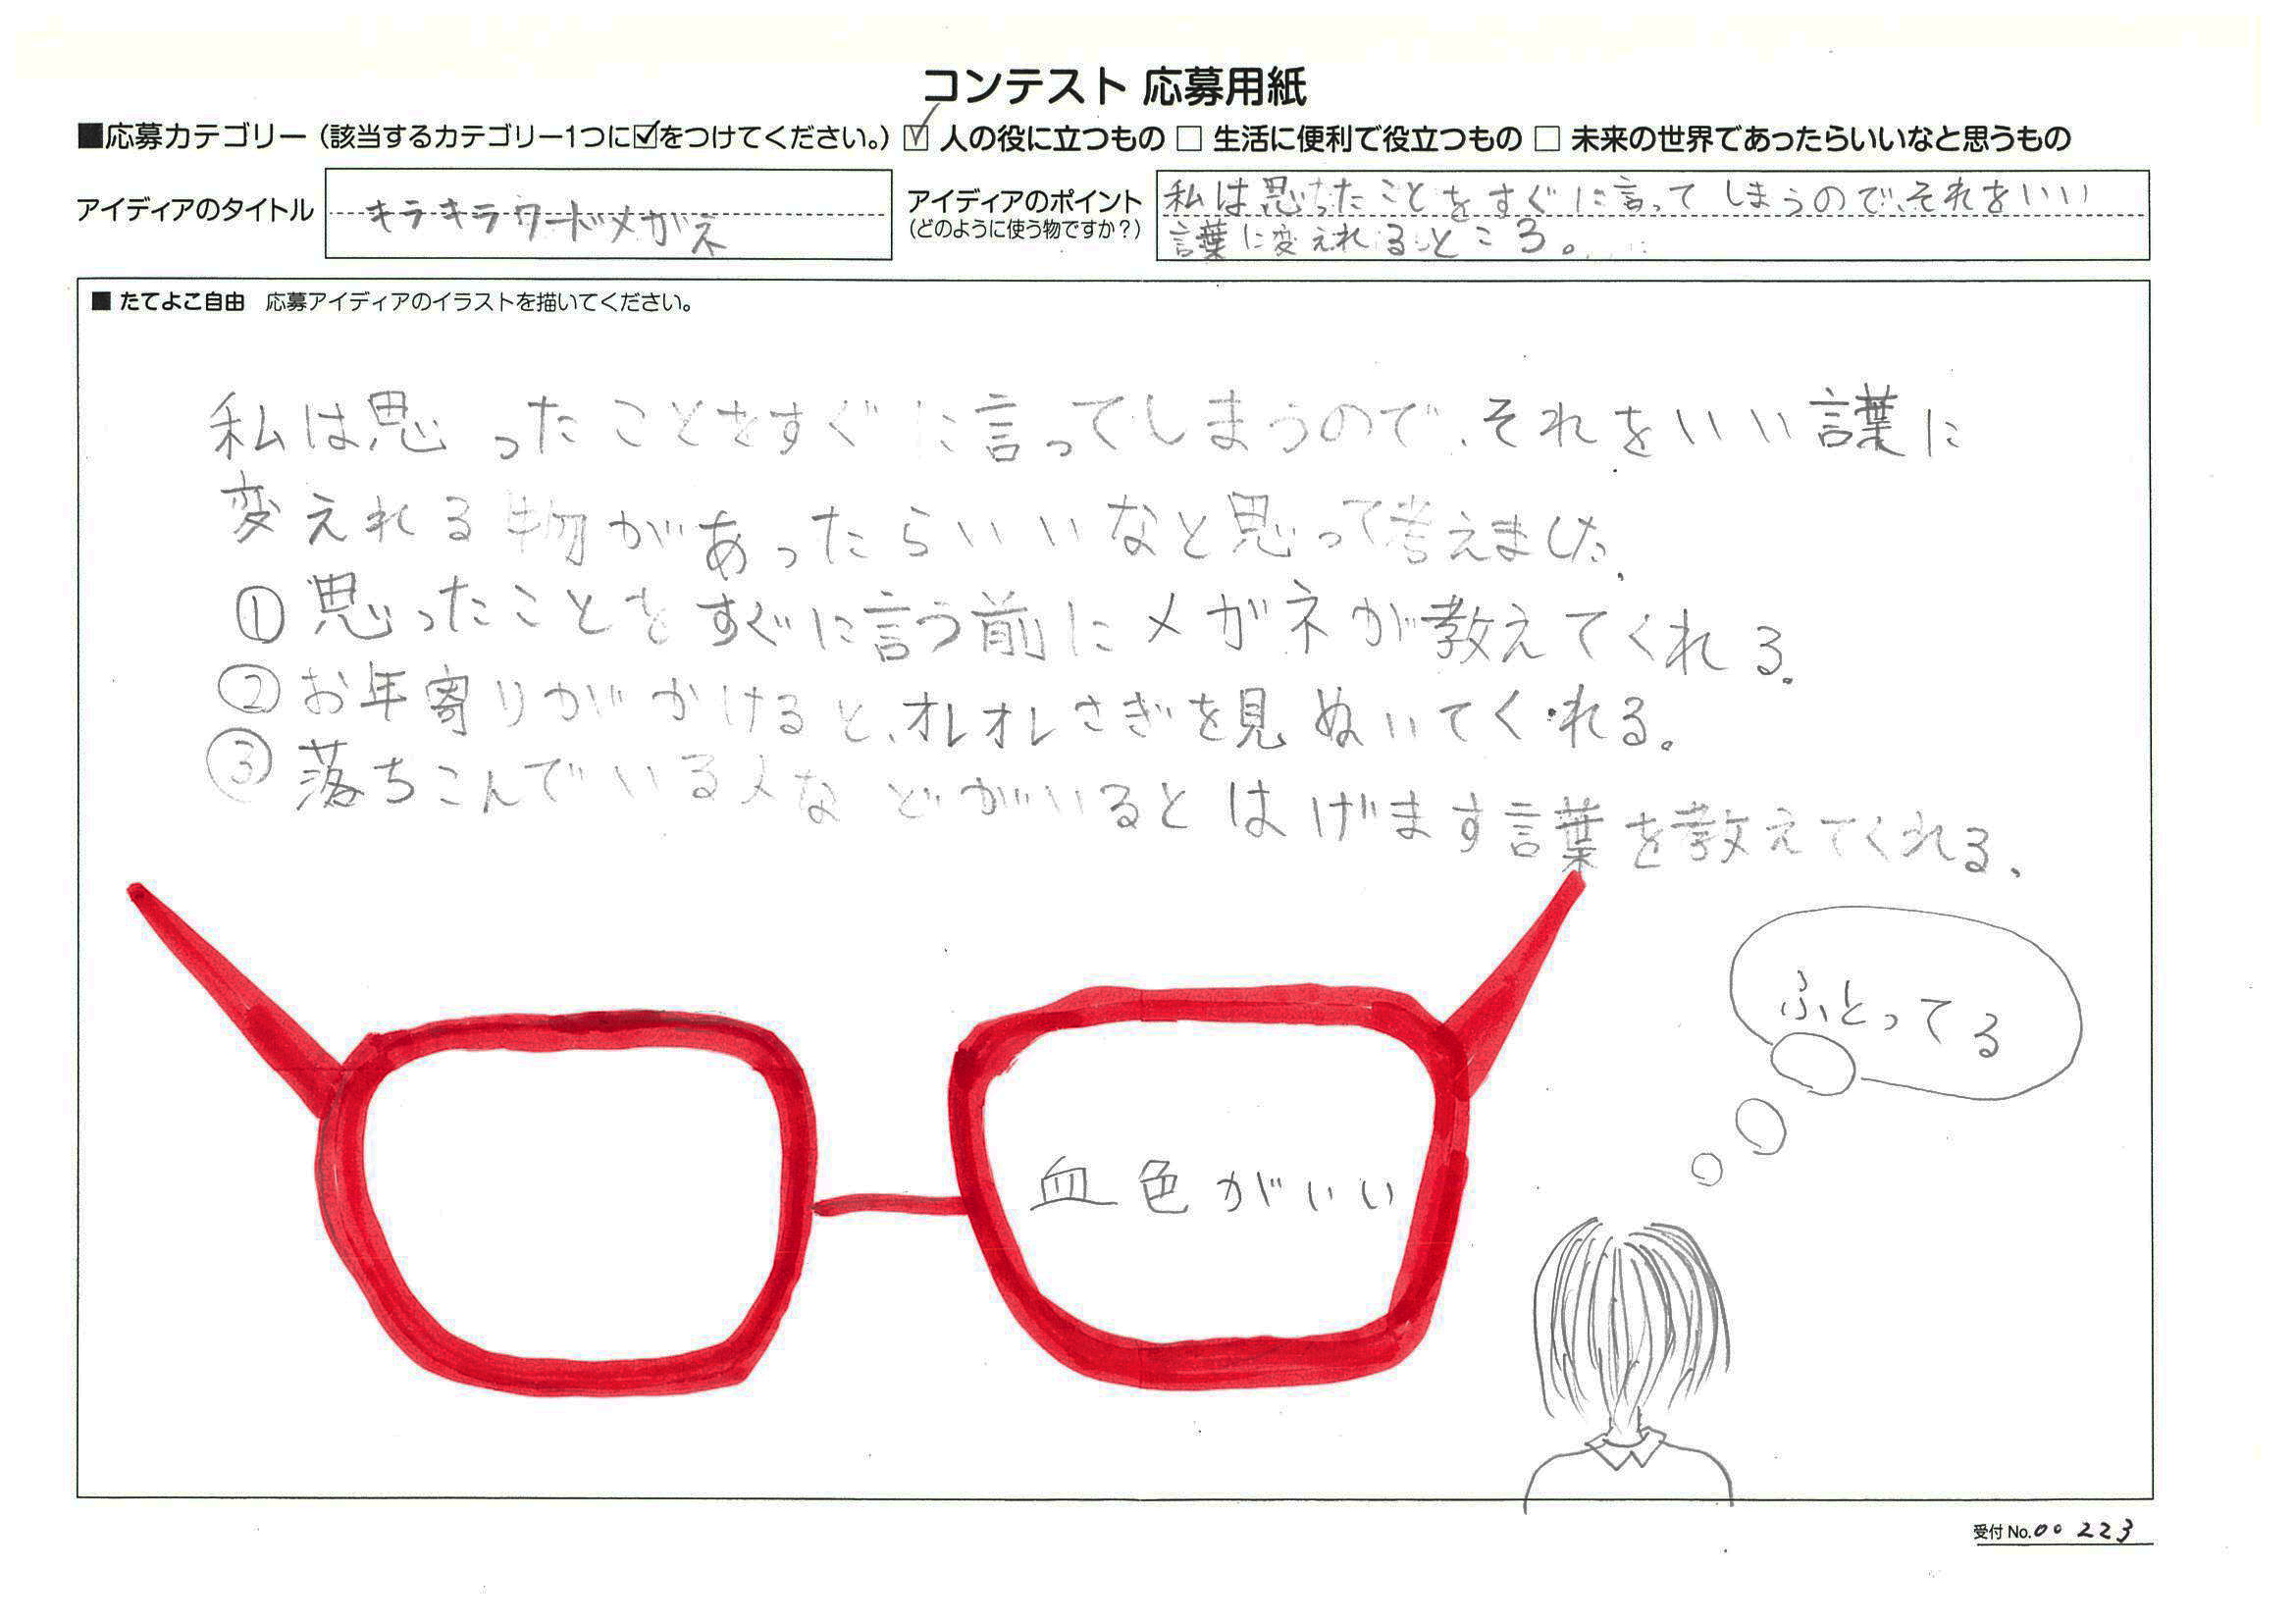 コンテスト 応募用紙
■応募カテゴリー（該当するカテゴリー1つに☑をつけてください。） ☑ 人の役に立つもの □ 生活に便利で役立つもの □ 未来の世界であったらいいなと思うもの
アイディアのタイトル
キラキラワードメガネ
アイディアのポイント
（どのように使う物ですか？）
私は思ったことをすぐに言ってしまうので、それをいい
言葉に変えれるところ。
■ たてよこ自由 応募アイディアのイラストを描いてください。
私は思ったことをすぐに言ってしまうので、それをいい言葉に
変えれる物があったらいいなと思って考えました。
①思ったことをすぐに言う前にメガネが教えてくれる。
②お年寄りがかけると、オレオレさぎを見ぬいてくれる。
③落ちこんでいる人などがいるとはげます言葉を教えてくれる、
ふとってる
血色がいい
受付 No.00223